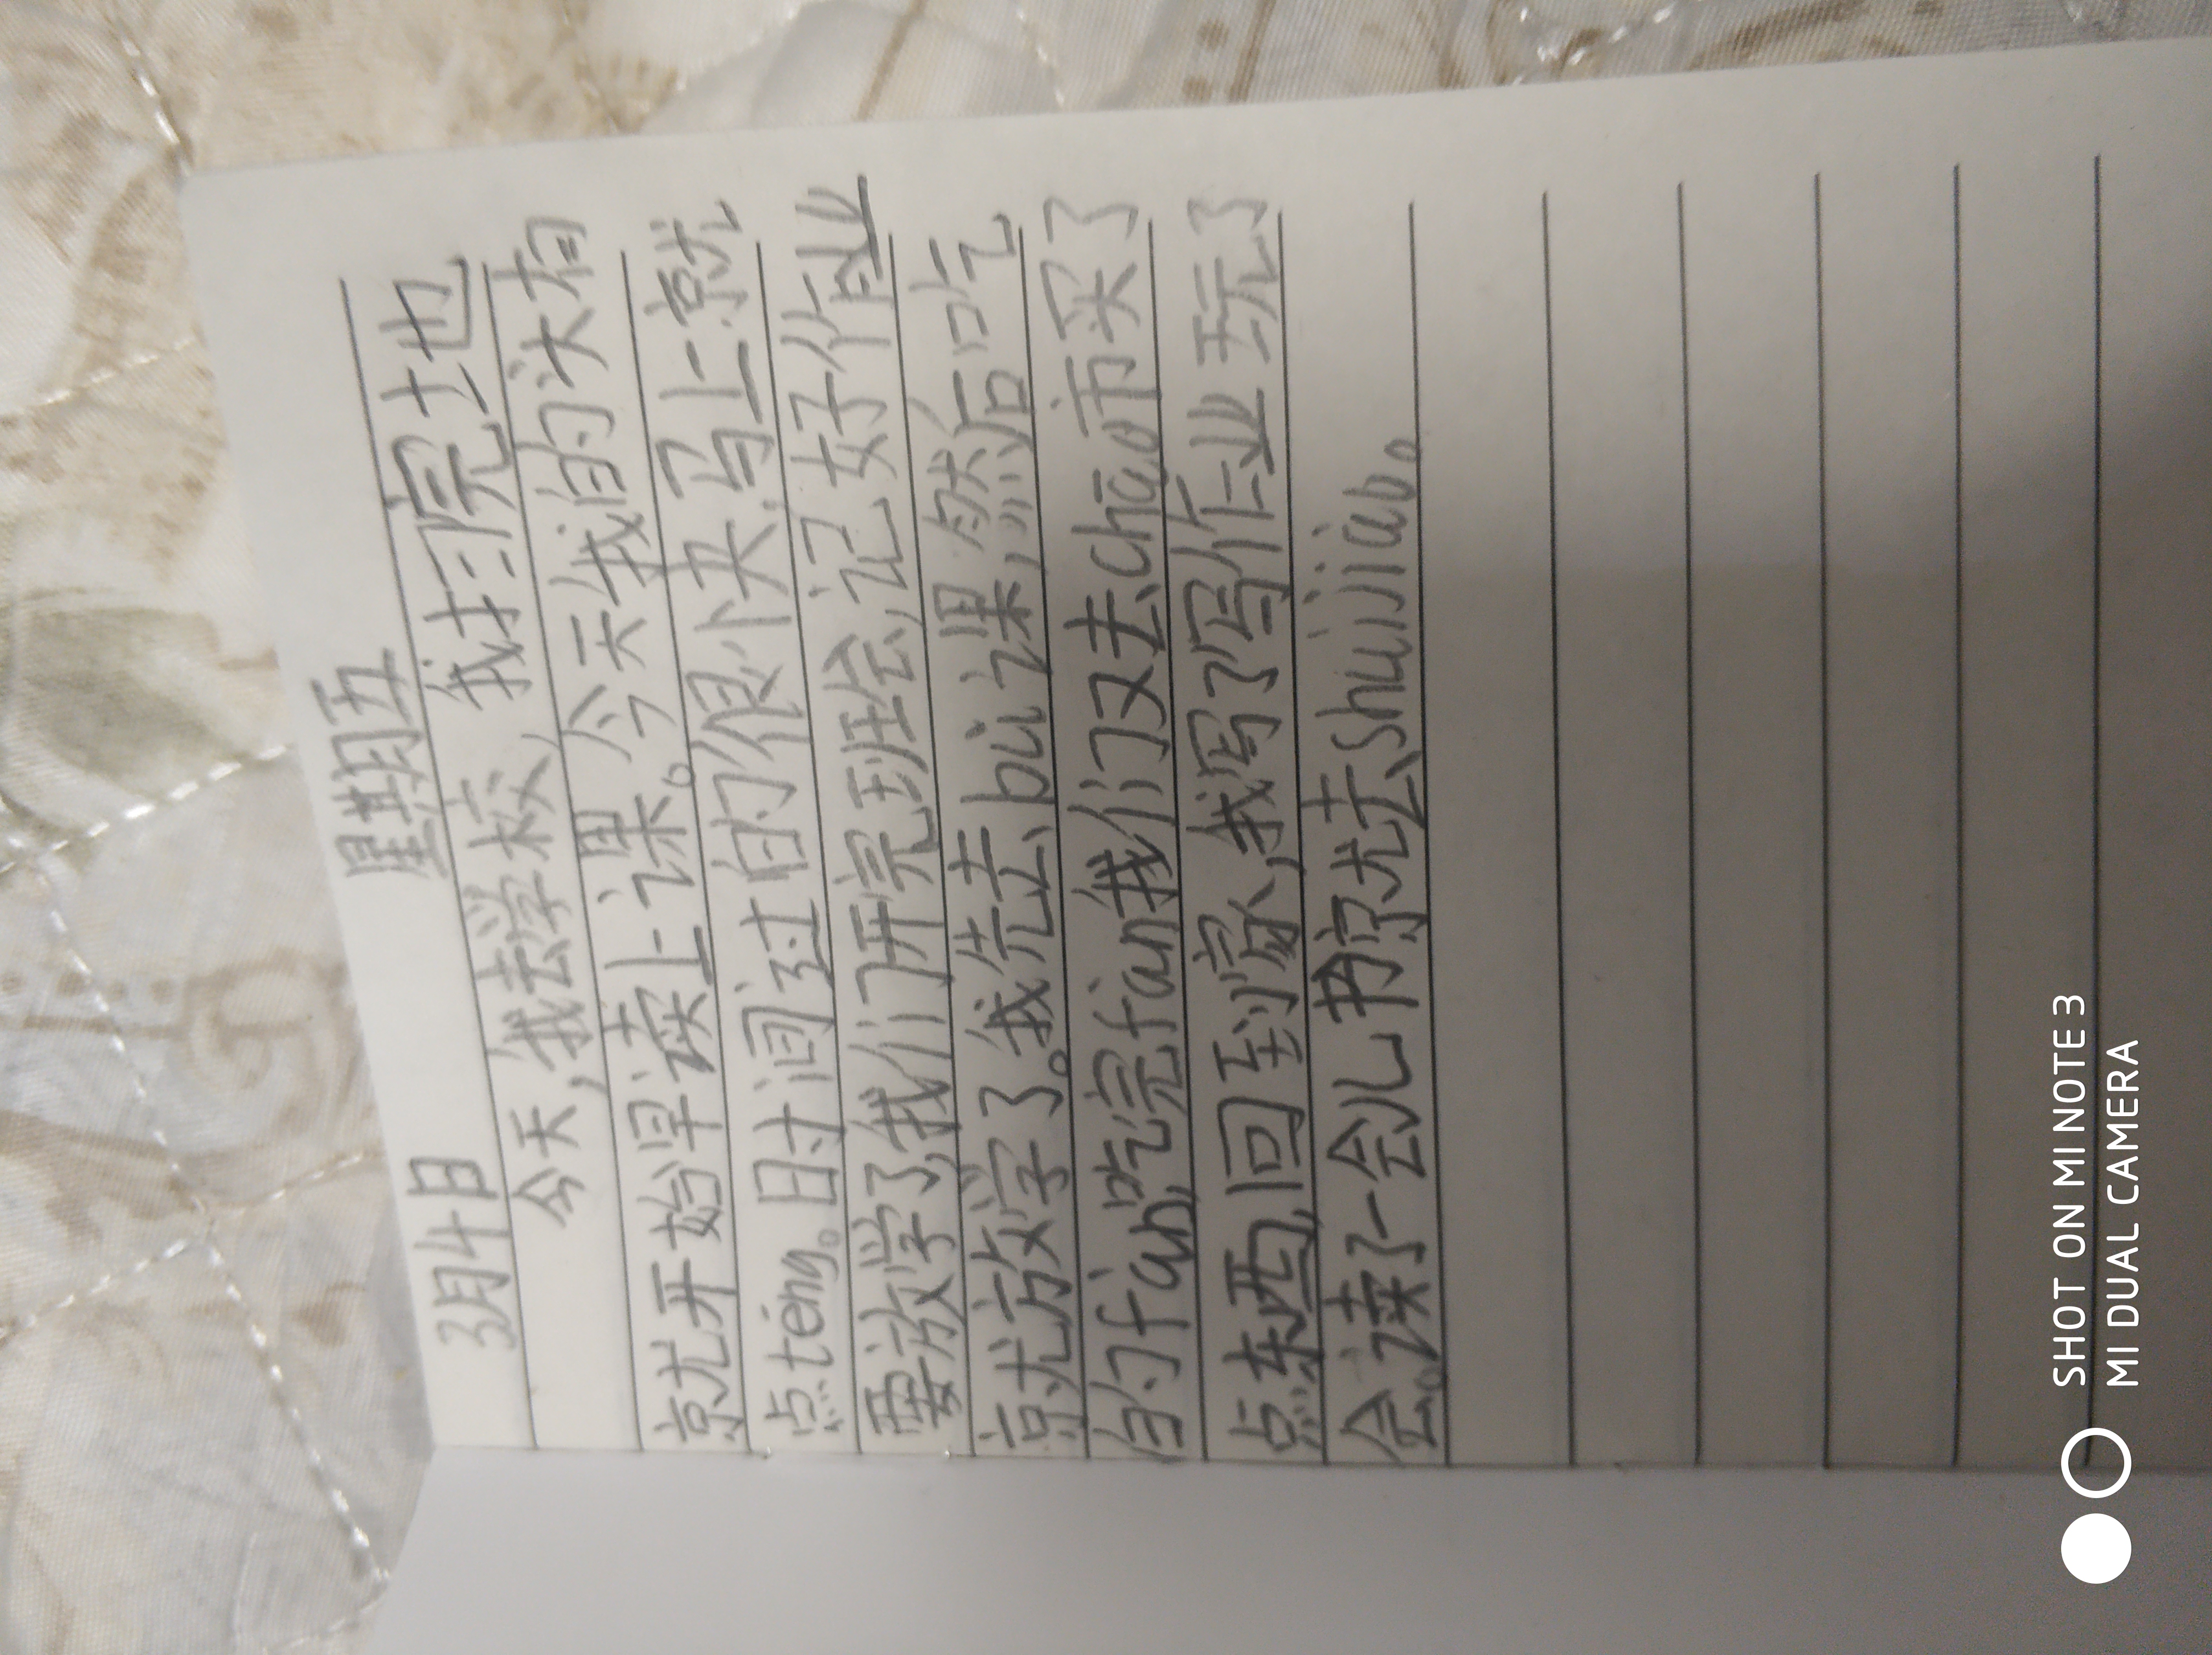 3月4日 星期五
今天,我去学校,我扫完地
就开始早读上课。今天我的头有
点téng。时间过的很快,马上就
要放学了,我们开完班会,记好作业
就放学了。我先去bǔ课,然后吃
的fàn,吃完fàn我们又去chāo市买了
点东西,回到家,我写了写作业玩了
会。读了一会儿书就去shuìjiào。
SHOT ON MI NOTE 3
MI DUAL CAMERA